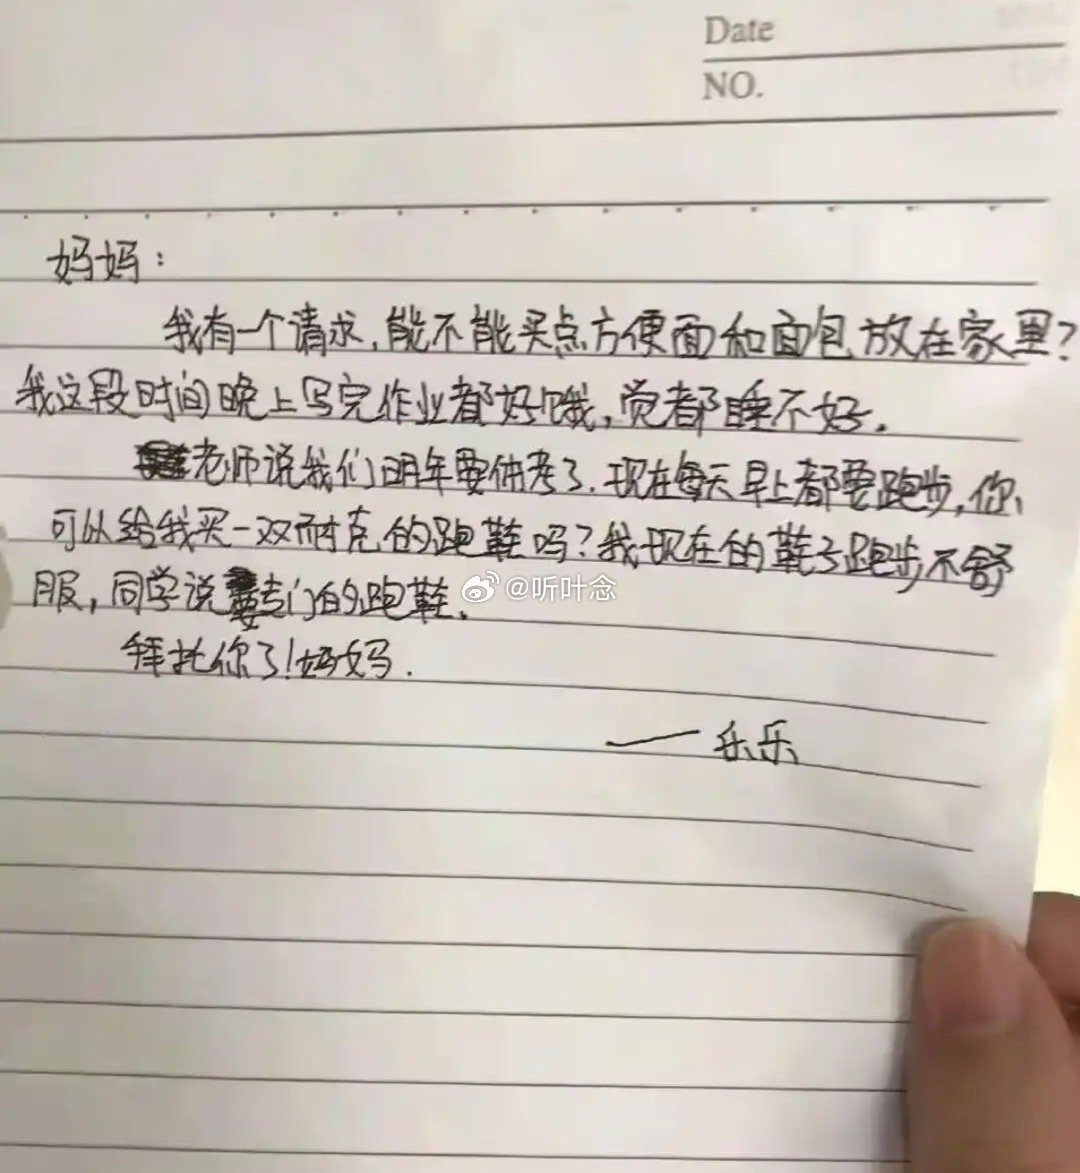 Date
NO.
妈妈：
我有一个请求，能不能买点方便面和面包放在家里？
我这段时间晚上写完作业都好饿，觉都睡不好．
老师说我们明年要体考了．现在每天早上都要跑步，你
可以给我买一双耐克的跑鞋吗？我现在的鞋子跑步不舒
服，同学说要专门的跑鞋．
拜托你了！妈妈．
——乐乐
@听叶念